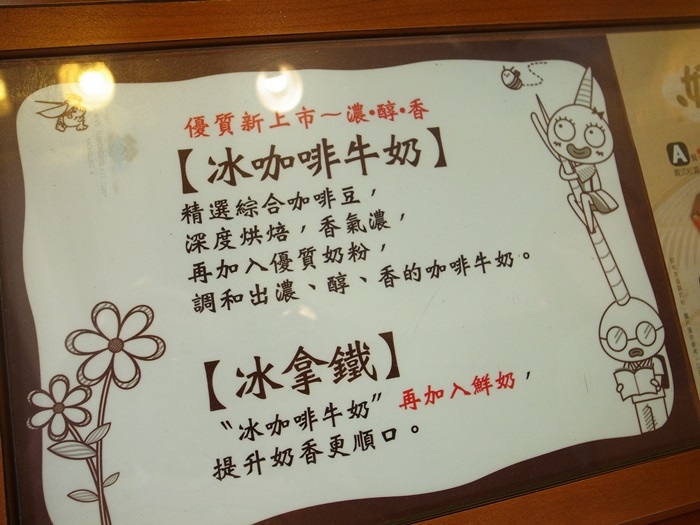 優質新上市～濃•醇•香
【冰咖啡牛奶】
精選綜合咖啡豆，
深度烘焙，香氣濃，
再加入優質奶粉，
調和出濃、醇、香的咖啡牛奶。
【冰拿鐵】
“冰咖啡牛奶”再加入鮮奶，
提升奶香更順口。
A